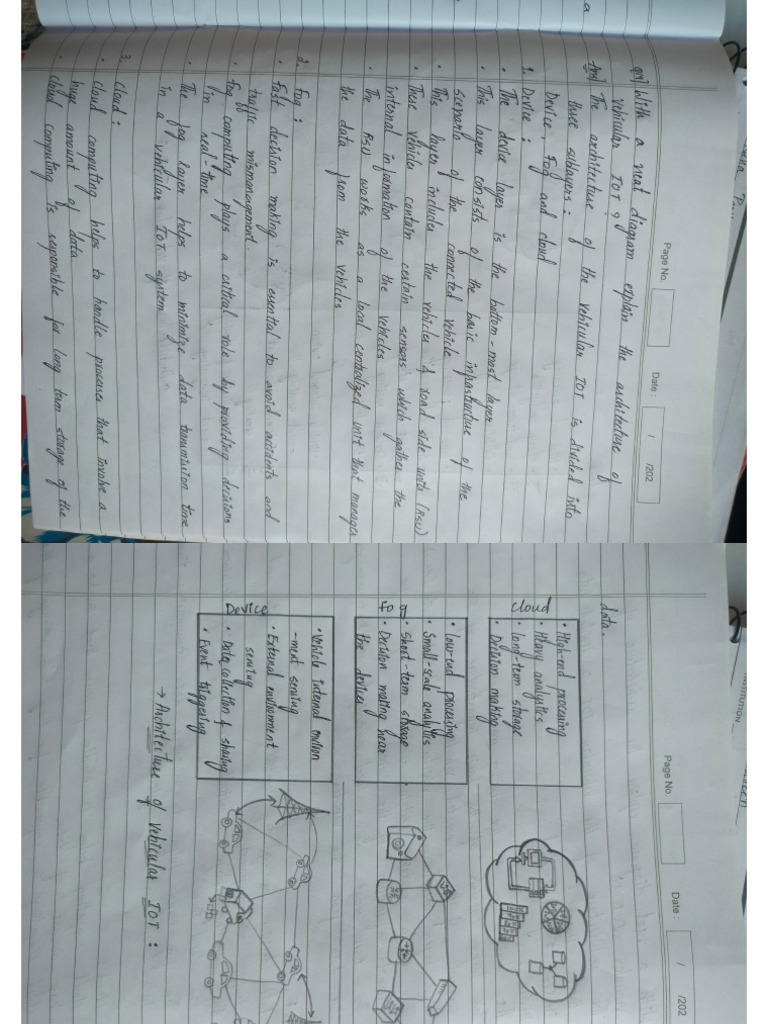 Page No.
Date : / /202
Q19] With a neat diagram explain the architecture of
vehicular IOT ?
Ans] The architecture of the vehicular IOT is divided into
three sublayers :
Device, Fog and cloud
1. Device :
• The device layer is the bottom-most layer
• This layer consists of the basic infrastructure of the
scenario of the connected vehicle
• This layer includes the vehicles & road side units (RSU)
• These vehicles contain certain sensors which gather the
internal information of the vehicles
• The RSU works as a local centralized unit that manages
the data from the vehicles
2. Fog :
• Fast decision making is essential to avoid accidents and
traffic mismanagement.
• Fog computing plays a critical role by providing decisions
in real-time
• The fog layer helps to minimize data transmission time
in a vehicular IOT system
3. Cloud :
• Cloud computing helps to handle processes that involve a
huge amount of data
• Cloud computing is responsible for long term storage of the
Page No.
Date : / /202
data.
Cloud
• High-end processing
• Heavy analytics
• long-term storage
• Decision making
Fog
• low-end processing
• Small-scale analytics
• Short-term storage
• Decision making near
the devices
Device
• Vehicle internal environ
-ment sensing
• External environment
sensing
• Data collection & sharing
• Event triggering
→ Architecture of vehicular IOT :